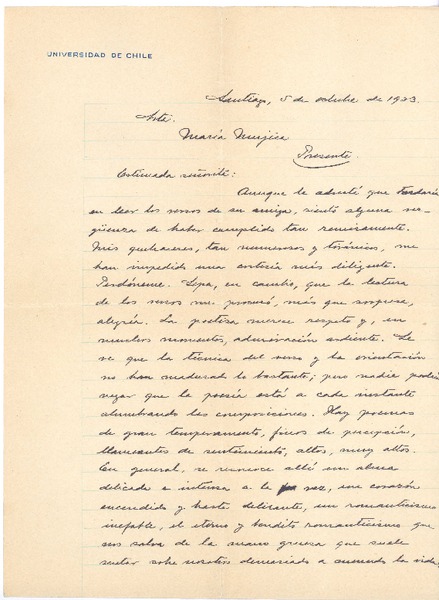 UNIVERSIDAD DE CHILE
Santiago, 5 de octubre de 1933.
Srta.
María Mujica
Presente.
Estimada señorita:
Aunque le advertí que tardaría
en leer los versos de su amiga, siento alguna ver-
güenza de haber cumplido tan
Mis quehaceres, tan numerosos y tiránicos, me
han impedido una entrega más diligente.
Perdóneme. Sepa, en cambio, que la lectura
de los versos me procuró, más que sorpresa,
alegría. La poetisa merece respeto y, en
muchos momentos, admiración ardiente. Se
ve que la técnica del verso y la orientación
no han madurado lo bastante; pero nadie podría
negar que la poesía está a cada instante
alumbrando las composiciones. Hay poemas
de gran temperamento, finos de percepción,
llameantes de sentimiento, altos, muy altos.
En general, se reconoce allí un alma
delicada e intensa a la vez, un corazón
encendido y hasta delirante, un romanticismo
inefable, el eterno y bendito romanticismo que
nos salva de la mano gruesa que suele
sobre nosotros demasiado a menudo la vida.